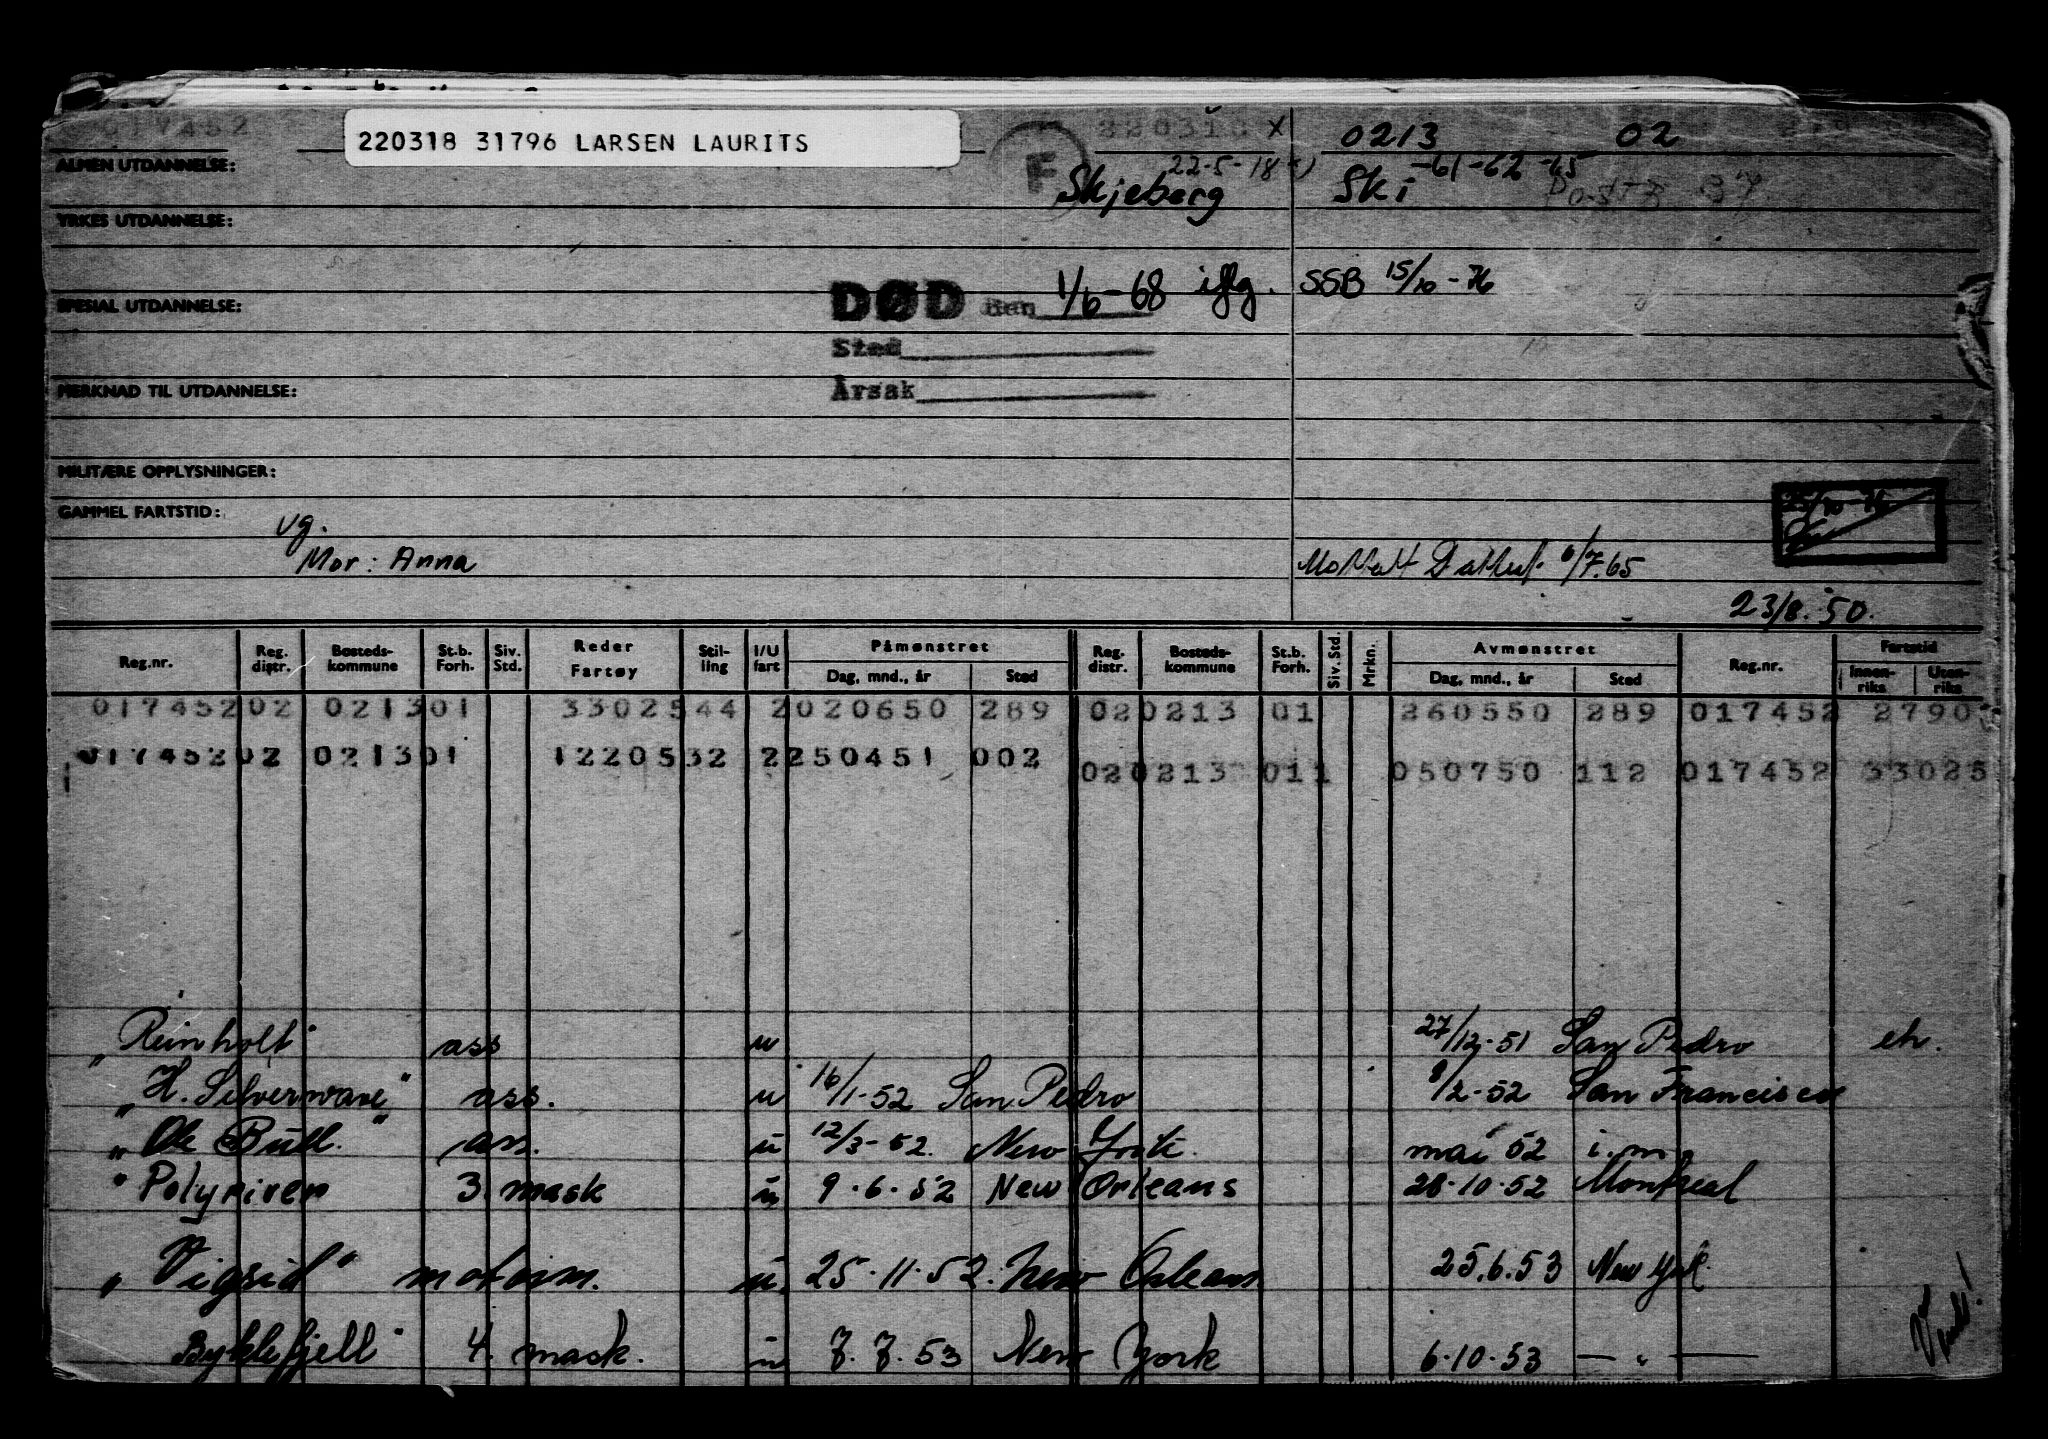 017452
220318 31796 LARSEN LAURITS
F
220318 X
0213 02
ALMEN UTDANNELSE:
22-5-18 x)
Skjeberg
Ski -61-62-65
YRKES UTDANNELSE:
SPESIAL UTDANNELSE:
DØD Den 1/6-68 iflg. SSB 15/10-76
Sted
Årsak
MERKNAD TIL UTDANNELSE:
MILITÆRE OPPLYSNINGER:
25/10-76
GAMMEL FARTSTID:
vg.
Mor: Anna
6/7.65
23/8.50.
Reg.nr. Reg. distr. Bosteds-kommune St.b. Forh. Siv. Std. Reder Fartøy Stil-ling I/U fart Påmønstret Dag, mnd., år Sted Reg. distr. Bosteds-kommune St.b. Forh. Siv. Std. Mrkn. Avmønstret Dag, mnd., år Sted Reg.nr. Fartstid Innen-riks Uten-riks
017452 02 0213 01 3302544 2 020650 289 02 0213 01 260550 289 017452 2790
017452 02 0213 01 1220532 2 250451 002
02 0213 011 050750 112 017452 33025
"Reinholt" ass u 27/12-51 San Pedro eh.
"H. Silverwave" ass. u 16/1-52 San Pedro 8/2-52 San Francisco
"Ole Bull" ass. u 12/3-52. New York. mai 52 i.m.
"Polyriver 3 mask u 9.6.52 New Orleans 28.10.52 Montreal
"Vigrid" motorm. u. 25.11.52. New Orleans 25.6.53 New York
Byklefjell" 4. mask. u 7.7.53 New York 6.10.53 — " —